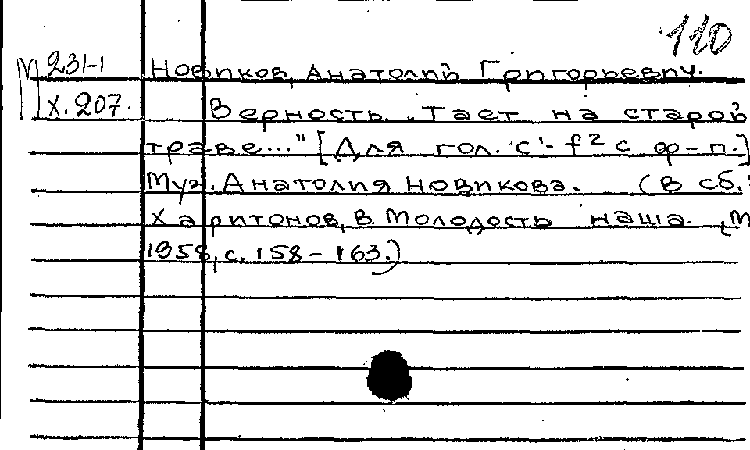 110
М 231-1 Новиков, Анатолий Григорьевич.
X. 207. Верность. „Тает на старой
траве..." [Для гол. c¹- f² с ф-п.]
Муз. Анатолия Новикова. (В сб.:
Харитонов, В. Молодость наша. М
1958, с. 158-163.)